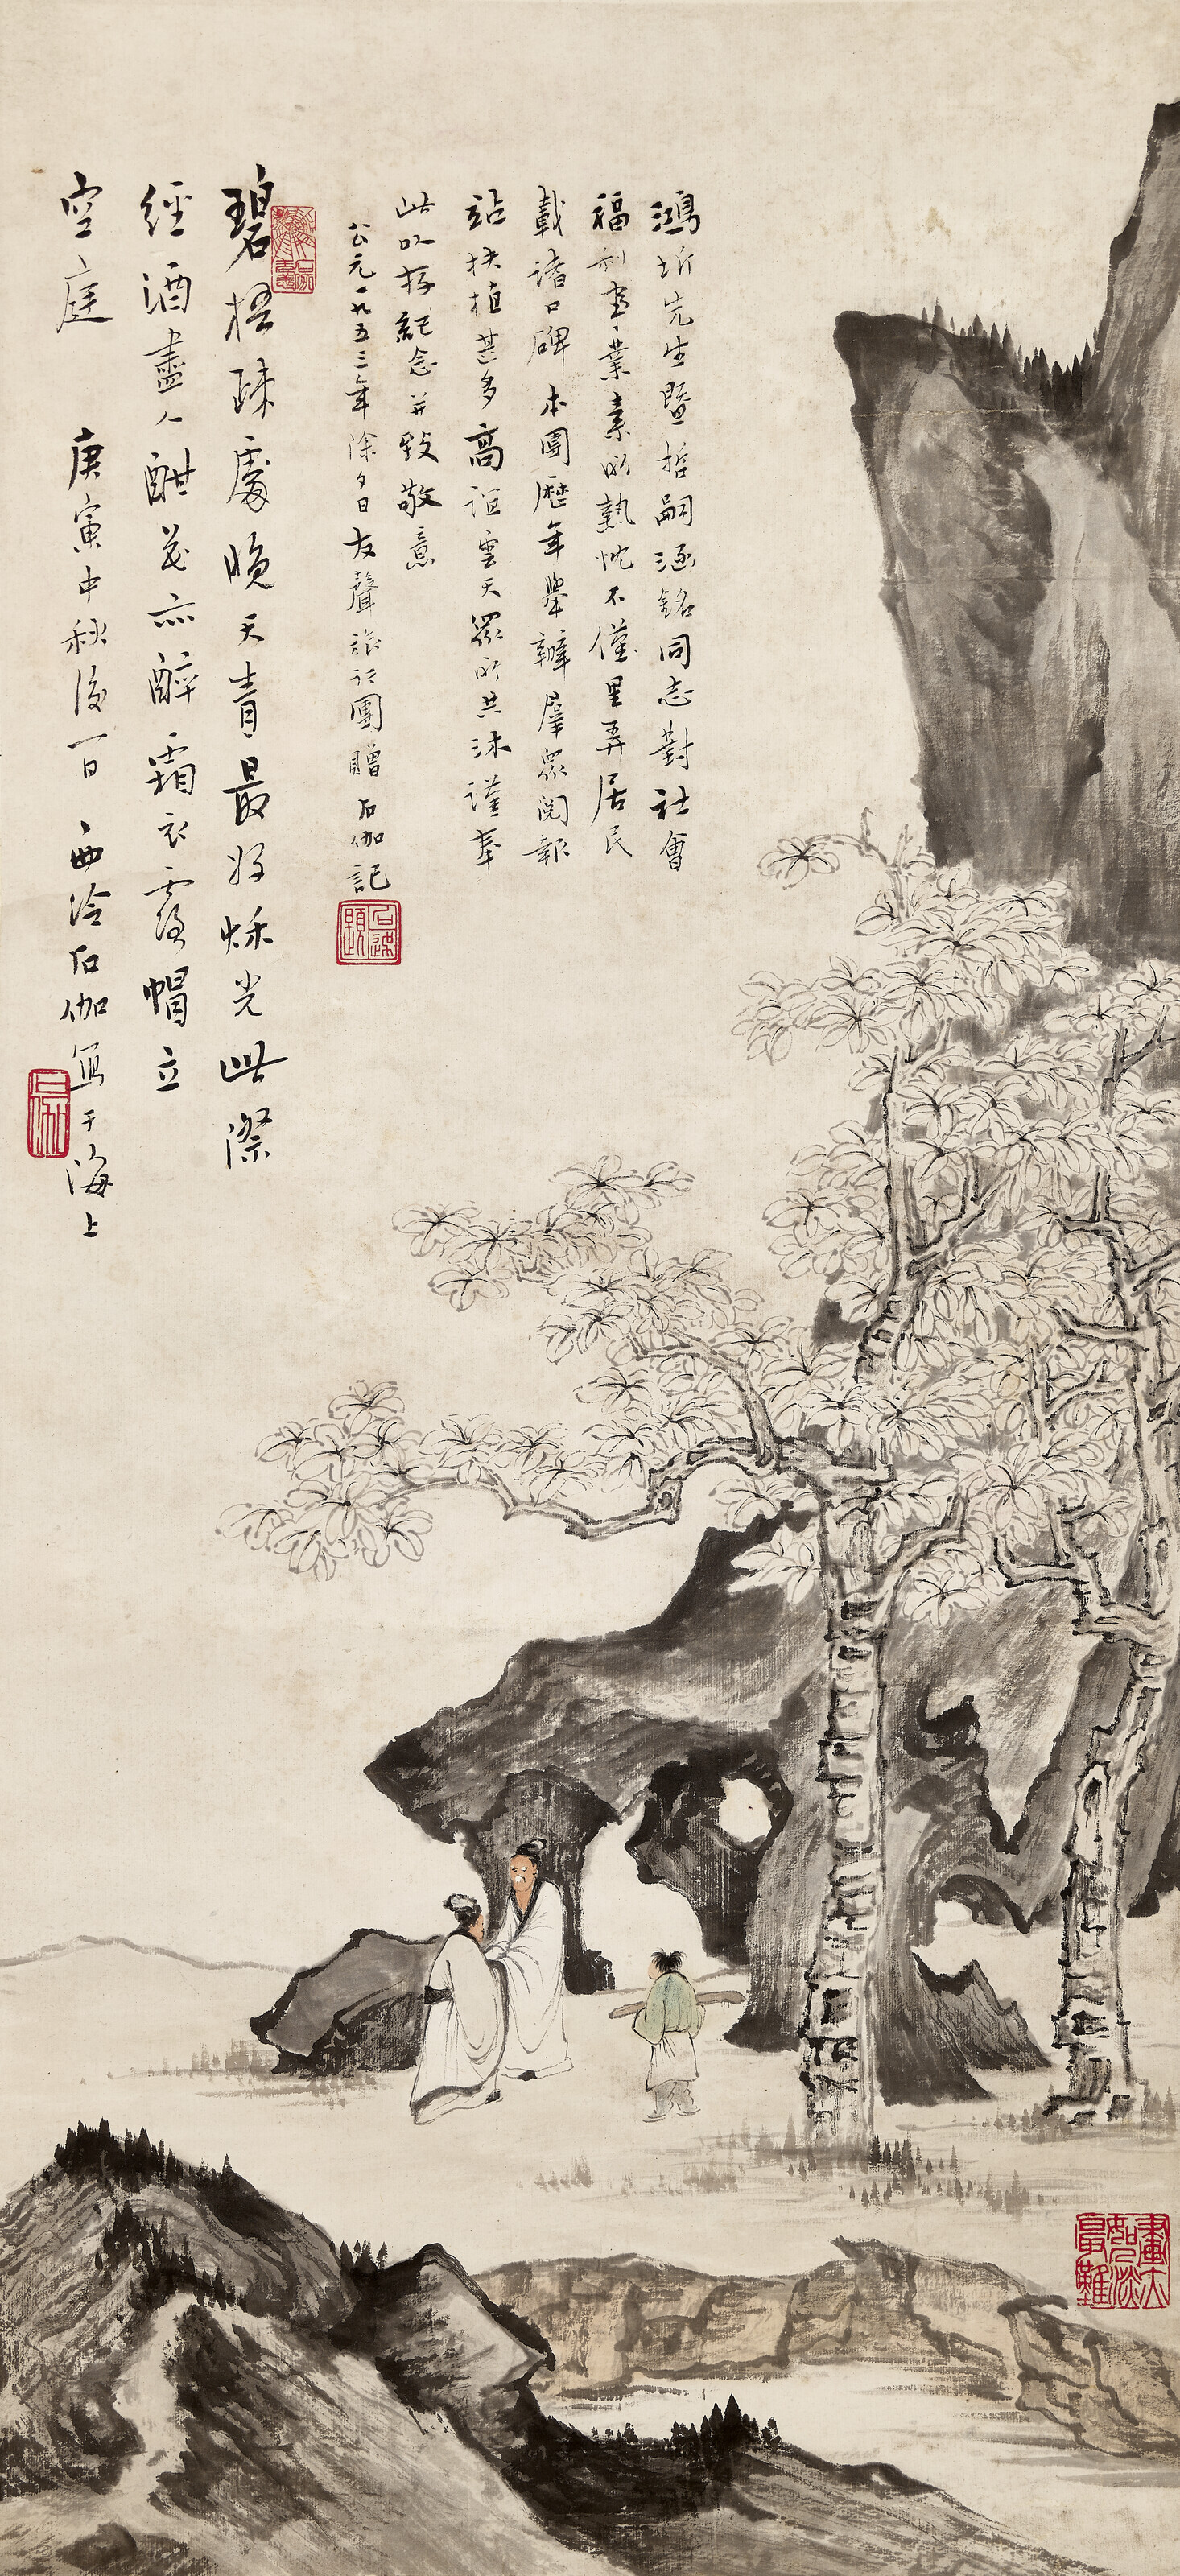 鴻圻先生暨哲嗣涵銘同志對社會
福利事業素所熱忱不僅里弄居民
載諸口碑本團歷年舉辦羣眾閱報
站扶植甚多高誼雲天眾所共沐謹奉
此以存記念并致敬意
公元一九五三年除夕日友聲旅行團贈 石伽記
碧梧疎處晚天青最好秋光此際
經酒盡人酣花亦醉霜衣露帽立
空庭 庚寅中秋後一日 西泠石伽寫于海上